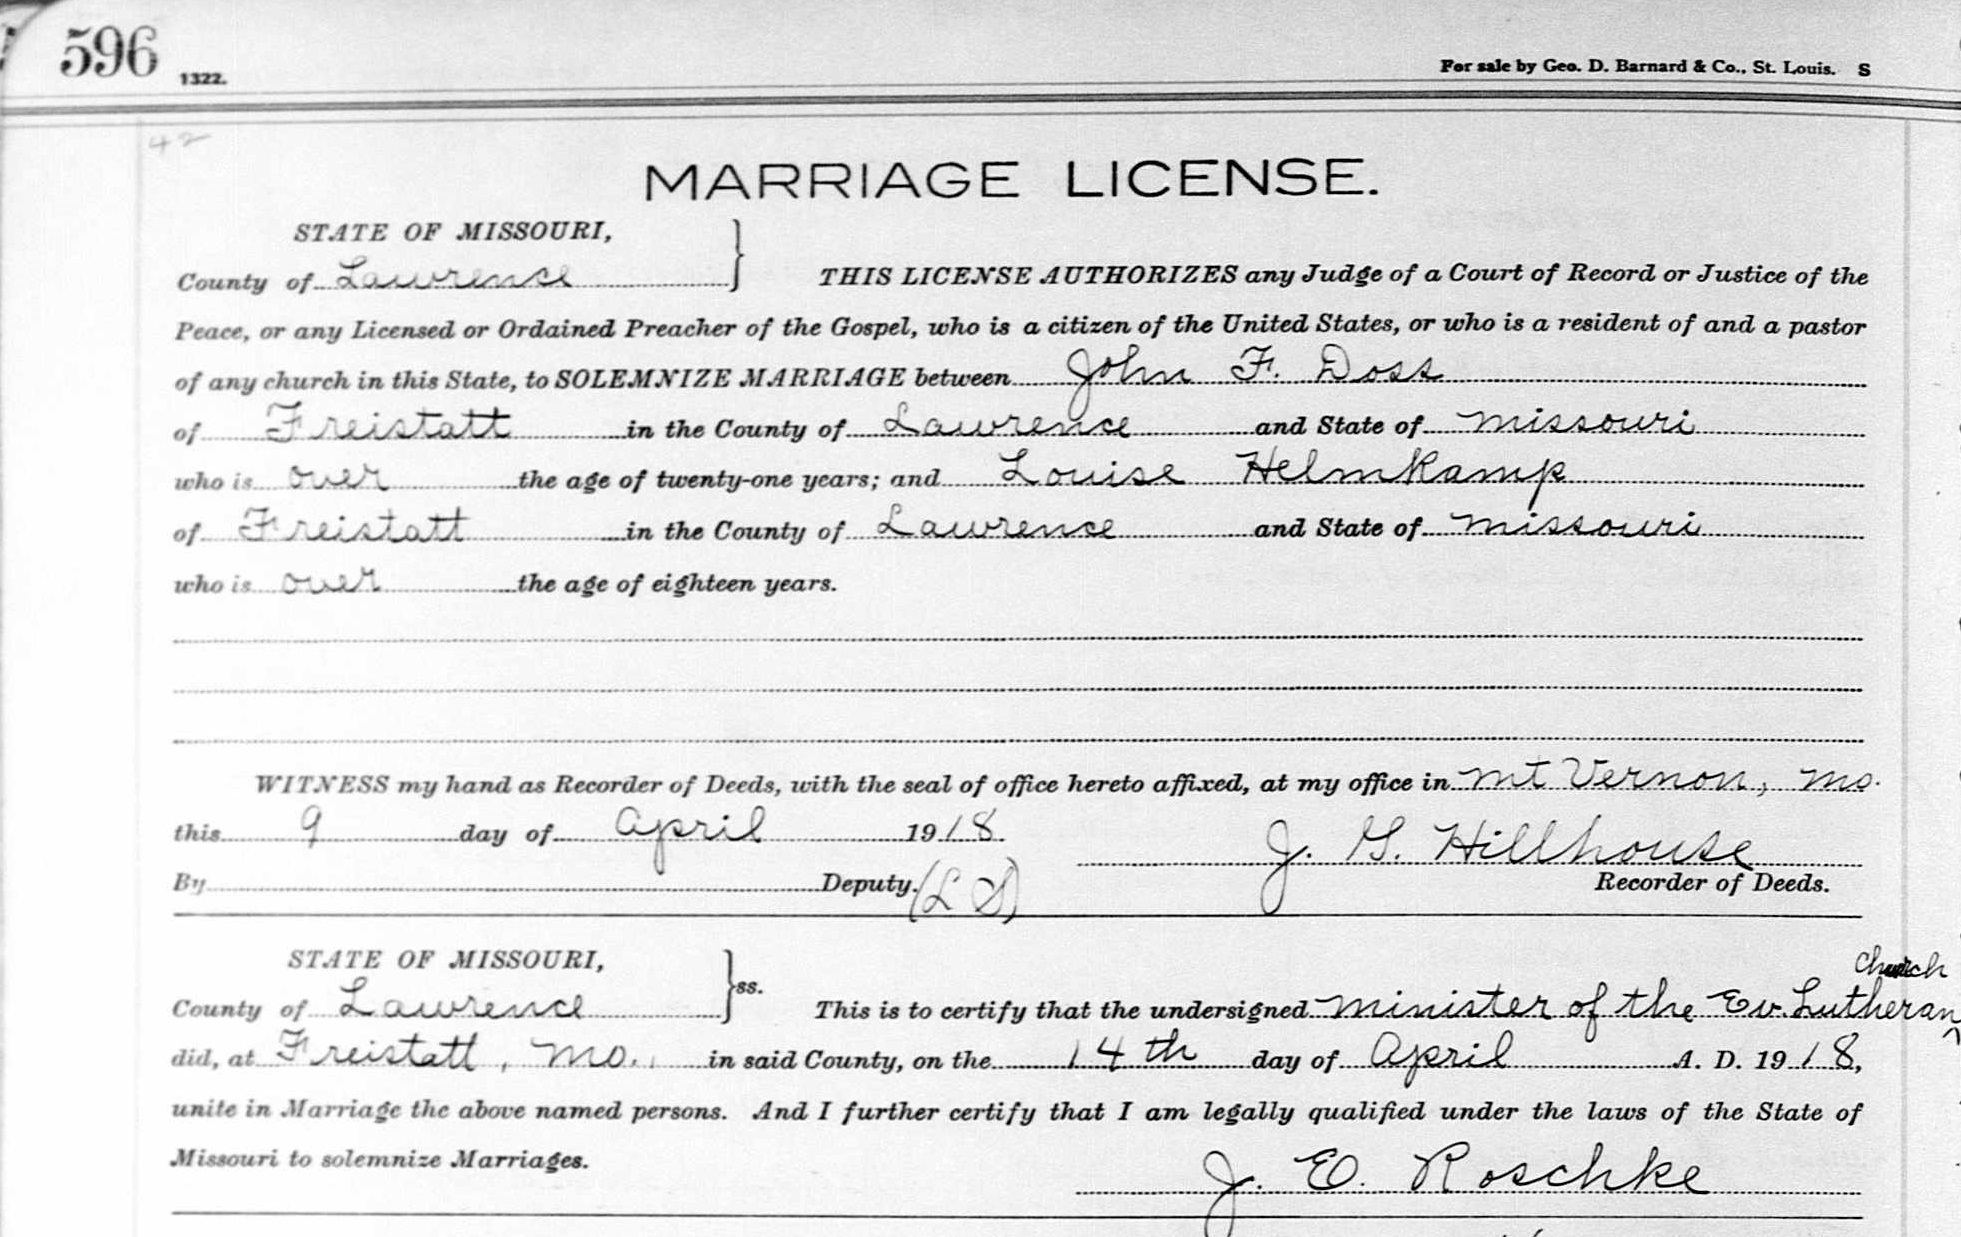 596 1322. For sale by Geo. D. Barnard & Co., St. Louis. S
42
MARRIAGE LICENSE.
STATE OF MISSOURI,
County of Lawrence } THIS LICENSE AUTHORIZES any Judge of a Court of Record or Justice of the
Peace, or any Licensed or Ordained Preacher of the Gospel, who is a citizen of the United States, or who is a resident of and a pastor
of any church in this State, to SOLEMNIZE MARRIAGE between John F. Doss
of Freistatt in the County of Lawrence and State of Missouri
who is over the age of twenty-one years; and Louise Helmkamp
of Freistatt in the County of Lawrence and State of Missouri
who is over the age of eighteen years.
WITNESS my hand as Recorder of Deeds, with the seal of office hereto affixed, at my office in Mt Vernon, Mo.
this 9 day of April 1918. J. G. Hillhouse
By Deputy. (L S) Recorder of Deeds.
STATE OF MISSOURI, } ss. Church
County of Lawrence This is to certify that the undersigned Minister of the Ev. Lutheran ^
did, at Freistatt, Mo., in said County, on the 14th day of April A. D. 1918,
unite in Marriage the above named persons. And I further certify that I am legally qualified under the laws of the State of
Missouri to solemnize Marriages.
J. E. Roschke